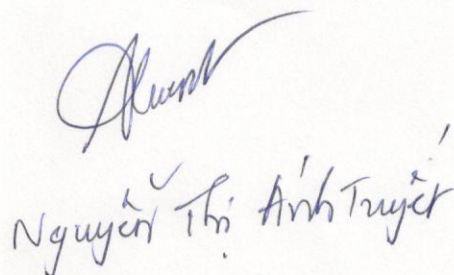 Nguyễn Thị Ánh Tuyết